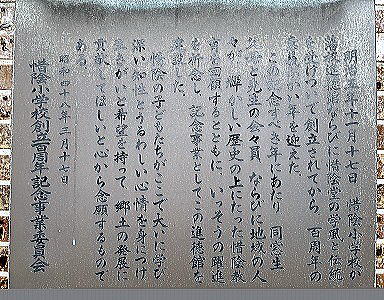 明治五年十一月十七日 惜陰小学校が
進徳館ならびに惜陰堂の学風と伝統
をうけついで創立されてから 百周年の
意義深い年を迎えた
この記念すべき年にあたり 同窓生
父母と先生の会々員 ならびに地域の人
々が 輝かしい歴史の上にたった惜陰教
育を回顧するとともに いっそうの躍進
を祈念し 記念事業としてこの進徳館を
建設した
惜陰の子どもたちがここで大いに学び
深い知性とうるわしい心情を身につけ
車さがいと希望を持って 郷土の発展に
貢献してほしいと心から念願するもので
ある
昭和四十八年三月十七日
惜陰小学校創立百周年記念事業委員会